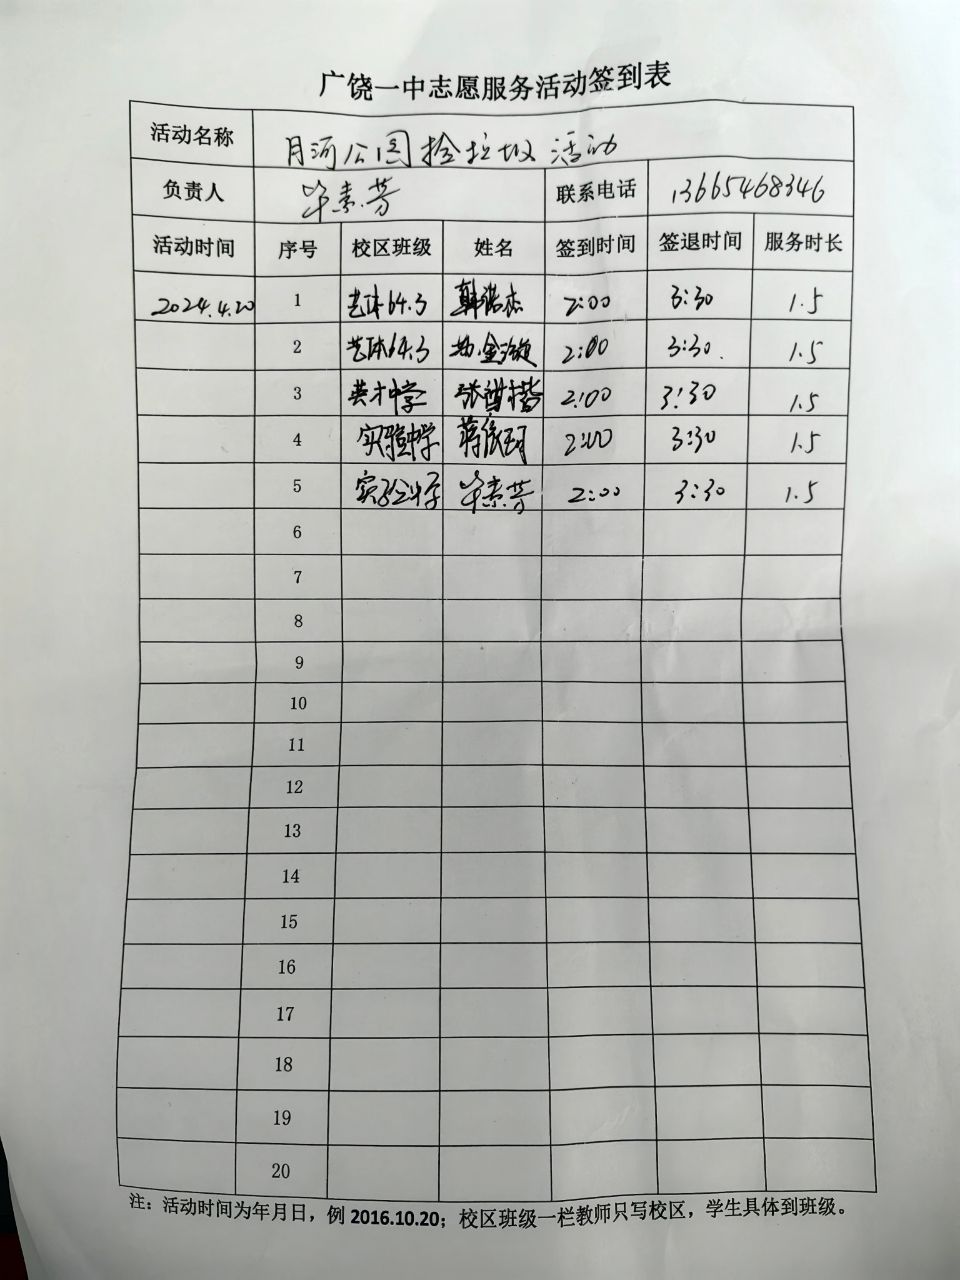 广饶一中志愿服务活动签到表
活动名称 月河公园捡垃圾活动
负责人 毕素芳 联系电话 13665468346
活动时间 序号 校区班级 姓名 签到时间 签退时间 服务时长
2024.4.20 1 艺体64.3 韩浩杰 2:00 3:30 1.5
2 艺体64.3 2:00 3:30. 1.5
3 英才中学 2:00 3:30 1.5
4 实验中学 蒋依珂 2:00 3:30 1.5
5 实验中学 毕素芳 2:00 3:30 1.5
6
7
8
9
10
11
12
13
14
15
16
17
18
19
20
注：活动时间为年月日，例 2016.10.20；校区班级一栏教师只写校区，学生具体到班级。